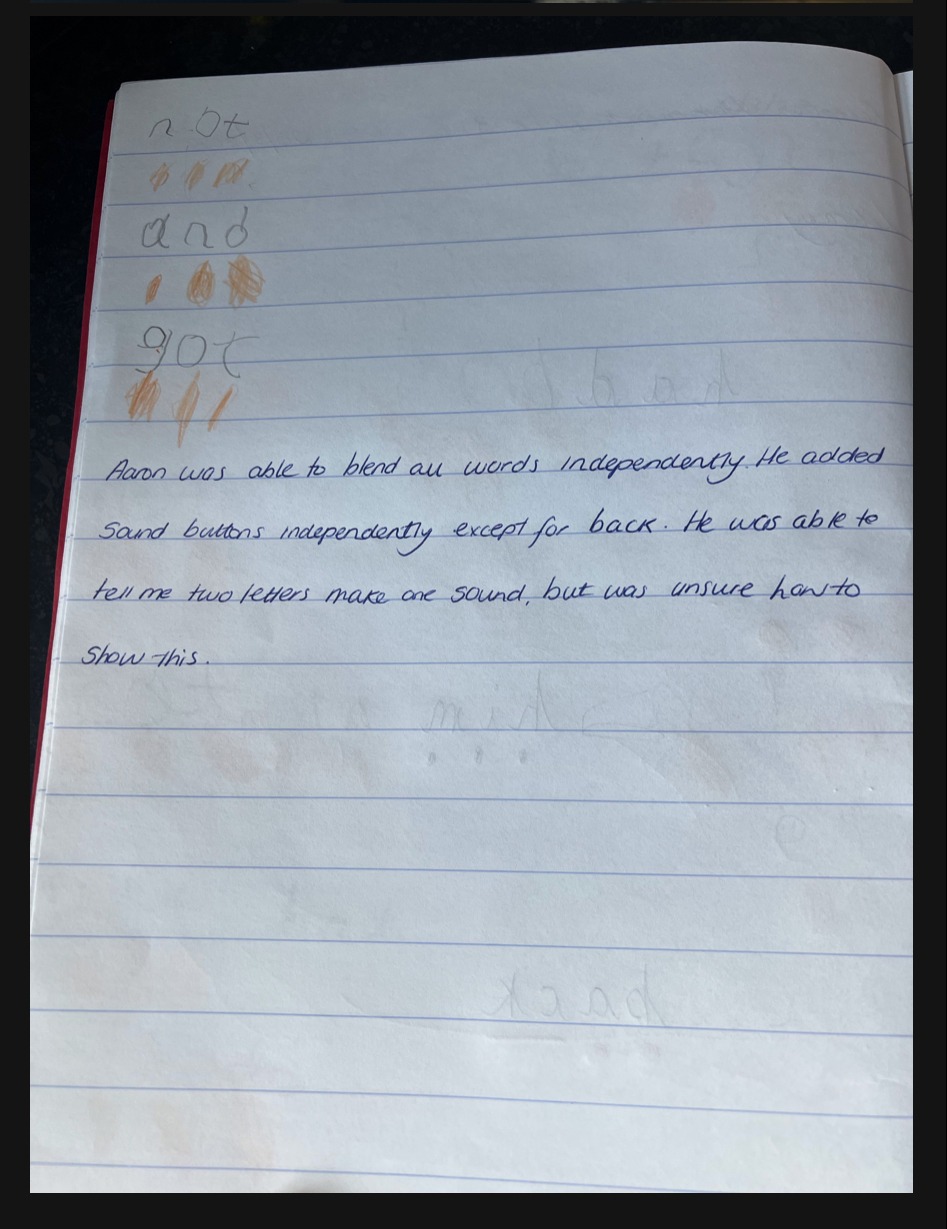 not
and
got
Aaron was able to blend all words independently. He added
sound buttons independently except for back. He was able to
tell me two letters make one sound, but was unsure how to
show this.
had
him
back